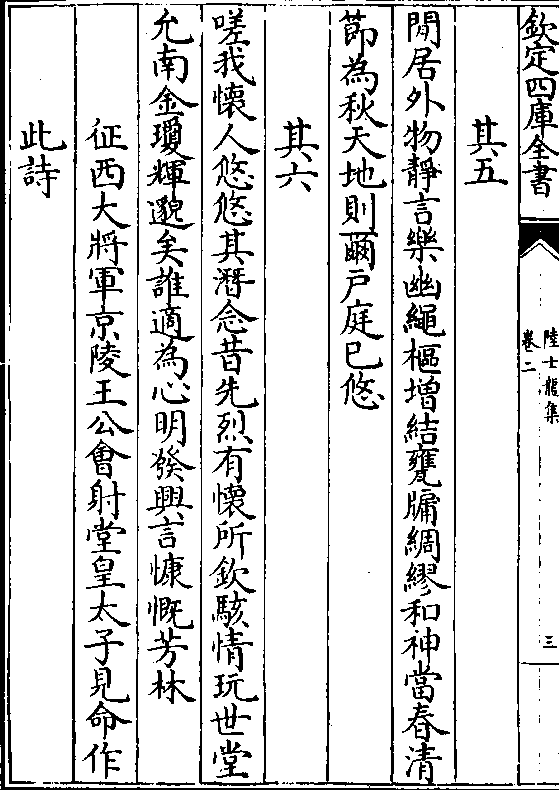 欽定四庫全書
陸士龍集
卷二
三
其五
閒居外物靜言樂幽繩樞增結甕牖綢繆和神當春清
節為秋天地則爾戶庭已悠
其六
嗟我懐人悠悠其潛念昔先烈有懐所欽駭情玩世堂
允南金瓊輝邈矣誰適為心明發興言慷慨芳林
征西大將軍京陵王公會射堂皇太子見命作
此詩